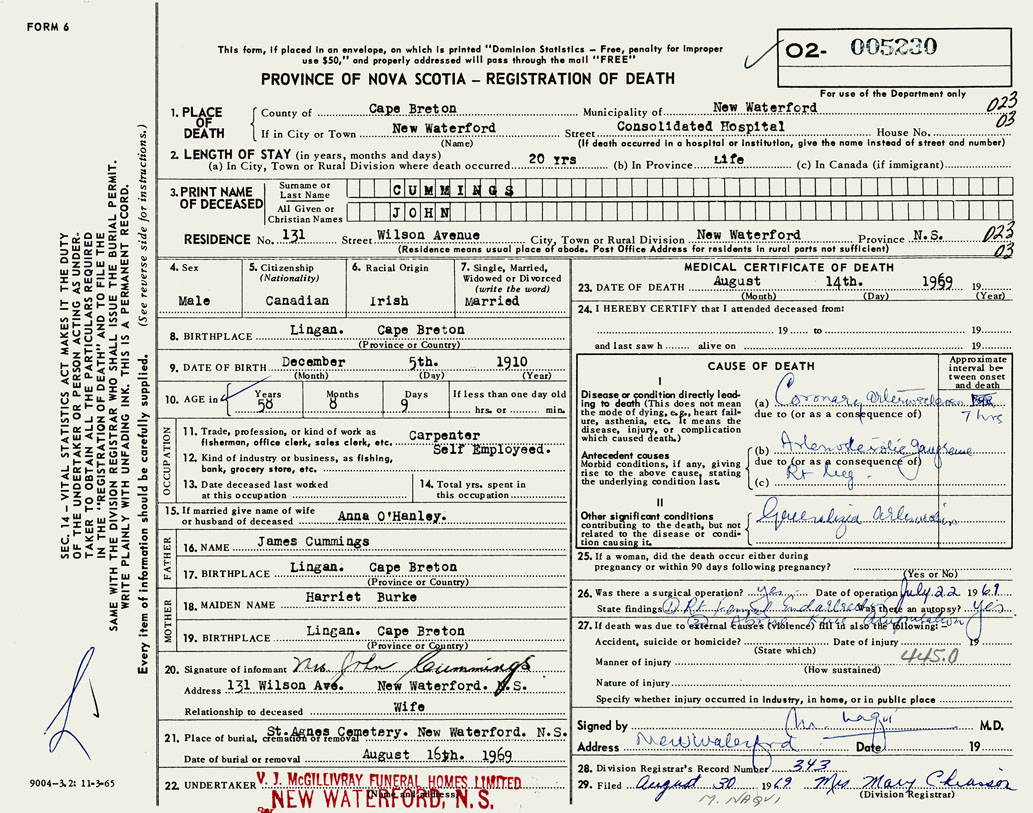 FORM 6
This form, if placed in an envelope, on which is printed "Dominion Statistics — Free, penalty for improper
use $50," and properly addressed will pass through the mail "FREE"
PROVINCE OF NOVA SCOTIA – REGISTRATION OF DEATH
02- 005230
For use of the Department only
1. PLACE OF DEATH
County of Cape Breton Municipality of New Waterford 023
If in City or Town New Waterford Street Consolidated Hospital House No. 03
(Name) (If death occurred in a hospital or institution, give the name instead of street and number)
2. LENGTH OF STAY (in years, months and days)
(a) In City, Town or Rural Division where death occurred 20 yrs (b) In Province Life (c) In Canada (if immigrant)
3. PRINT NAME OF DECEASED
Surname or Last Name CUMMINGS
All Given or Christian Names JOHN
RESIDENCE No. 131 Street Wilson Avenue City, Town or Rural Division New Waterford Province N.S. 023
(Residence means usual place of abode. Post Office Address for residents in rural parts not sufficient) 03
4. Sex
Male
5. Citizenship
(Nationality)
Canadian
6. Racial Origin
Irish
7. Single, Married,
Widowed or Divorced
(write the word)
Married
8. BIRTHPLACE Lingan. Cape Breton
(Province or Country)
9. DATE OF BIRTH December 5th. 1910
(Month) (Day) (Year)
10. AGE in
Years Months Days If less than one day old
58 8 9 hrs. or min.
OCCUPATION
11. Trade, profession, or kind of work as
fisherman, office clerk, sales clerk, etc. Carpenter
Self Employeed.
12. Kind of industry or business, as fishing,
bank, grocery store, etc.
13. Date deceased last worked
at this occupation
14. Total yrs. spent in
this occupation
15. If married give name of wife
or husband of deceased Anna O'Hanley.
FATHER
16. NAME James Cummings
17. BIRTHPLACE Lingan. Cape Breton
(Province or Country)
MOTHER
18. MAIDEN NAME Harriet Burke
19. BIRTHPLACE Lingan. Cape Breton
(Province or Country)
20. Signature of informant Mrs John Cummings
Address 131 Wilson Ave. New Waterford. N.S.
Relationship to deceased Wife
21. Place of burial, cremation or removal St. Agnes Cemetery. New Waterford. N.S.
Date of burial or removal August 16th. 1969
22. UNDERTAKER V. J. McGILLIVRAY FUNERAL HOMES LIMITED
(Name and address)
NEW WATERFORD, N.S.
MEDICAL CERTIFICATE OF DEATH
23. DATE OF DEATH August 14th. 1969 19
(Month) (Day) (Year)
24. I HEREBY CERTIFY that I attended deceased from:
19 to 19
and last saw h alive on 19
CAUSE OF DEATH
Approximate
interval be-
tween onset
and death
I
Disease or condition directly lead-
ing to death (This does not mean
the mode of dying, e.g., heart fail-
ure, asthenia, etc. It means the
disease, injury, or complication
which caused death.)
(a) Coronary
due to (or as a consequence of) 7 hrs
Antecedent causes
Morbid conditions, if any, giving
rise to the above cause, stating
the underlying condition last.
(b) gangrene
due to (or as a consequence of)
(c) Rt leg
II
Other significant conditions
contributing to the death, but not
related to the disease or condi-
tion causing it.
Generalized
25. If a woman, did the death occur either during
pregnancy or within 90 days following pregnancy?
(Yes or No)
26. Was there a surgical operation? yes Date of operation July 22 1969
State findings ① Rt Femoral Was there an autopsy? yes
② Above Knee Amputation
27. If death was due to external causes (violence) fill in also the following:
Accident, suicide or homicide? Date of injury 19
(State which) 445.0
Manner of injury
(How sustained)
Nature of injury
Specify whether injury occurred in industry, in home, or in public place
Signed by M. Naqui M.D.
Address New Waterford Date 19
28. Division Registrar's Record Number 343
29. Filed August 30 1969 Mrs Mary
M. NAQUI (Division Registrar)
SEC. 14 – VITAL STATISTICS ACT MAKES IT THE DUTY
OF THE UNDERTAKER OR PERSON ACTING AS UNDER-
TAKER TO OBTAIN ALL THE PARTICULARS REQUIRED
IN THE "REGISTRATION OF DEATH" AND TO FILE THE
SAME WITH THE DIVISION REGISTRAR WHO SHALL ISSUE THE BURIAL PERMIT.
WRITE PLAINLY WITH UNFADING INK. THIS IS A PERMANENT RECORD.
Every item of information should be carefully supplied. (See reverse side for instructions.)
9004–3.2: 11-3-65